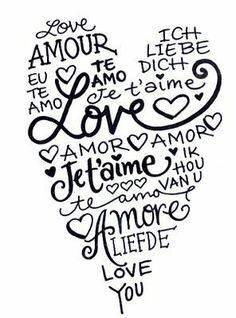 Love
AMOUR
ICH
LIEBE
DICH
EU
TE
AMO
TE
AMO
Je t'aime
Love
AMOR
AMOR
Je t'aime
IK
HOU
VAN U
te amo
Amore
LIEFDE
LOVE
YOU